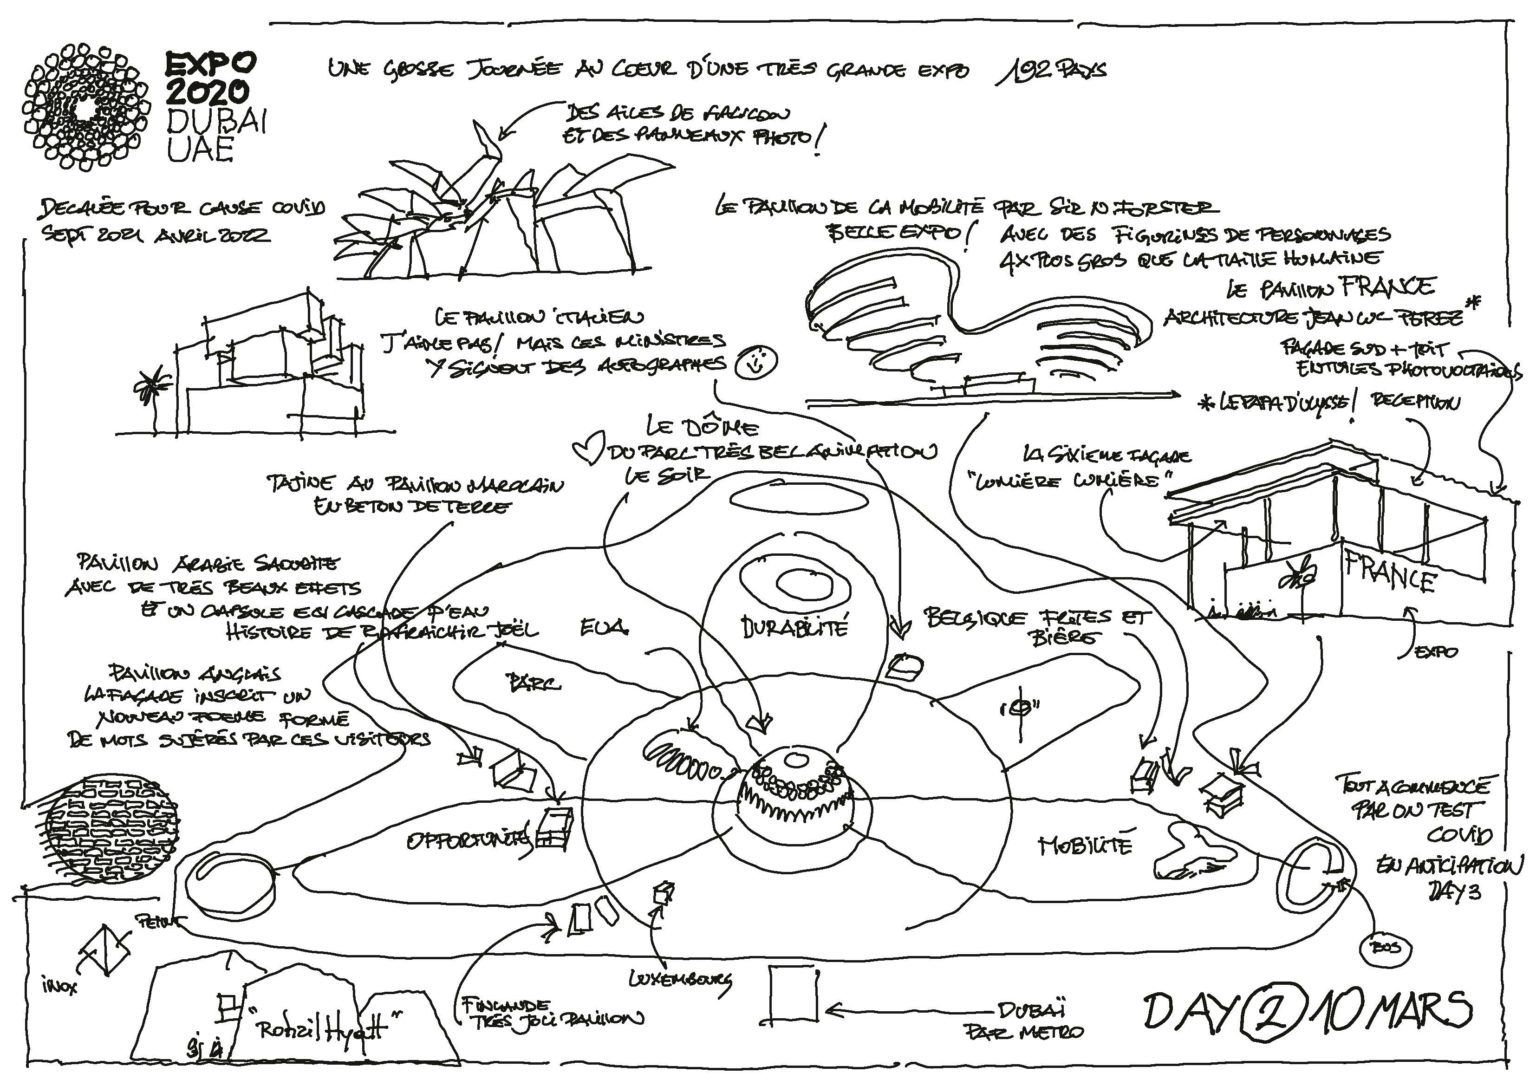 EXPO
2020
DUBAI
UAE
UNE GROSSE JOURNÉE AU CŒUR D'UNE TRÈS GRANDE EXPO 192 PAYS
DES AILES DE FAUCON
ET DES PANNEAUX PHOTO!
DECALÉE POUR CAUSE COVID
SEPT 2021 AVRIL 2022
LE PAVILLON DE LA MOBILITÉ PAR SIR N FORSTER
BELLE EXPO! AVEC DES FIGURINES DE PERSONNAGES
4X PLUS GROS QUE LA TAILLE HUMAINE
LE PAVILLON FRANCE
ARCHITECTURE JEAN LUC PEREZ*
FAÇADE SUD + TOIT
EN TUILES PHOTOVOLTAIQUES
* LE PAPA D'ULYSSE! RECEPTION
LE PAVILLON ITALIEN
J'AIME PAS! MAIS LES MINISTRES
Y SIGNENT DES AUTOGRAPHES
LE DÔME
DU PARC TRÈS BEL ANIMATION
LE SOIR
LA SIXIEME FAÇADE
"LUMIÈRE LUMIÈRE"
TAJINE AU PAVILLON MAROCAIN
EN BETON DE TERRE
PAVILLON ARABIE SAOUDITE
AVEC DE TRÈS BEAUX EFFETS
ET UN CAPSULE EN CASCADE D'EAU
HISTOIRE DE RAFRAICHIR JOËL
EUA
DURABILITÉ
BELGIQUE FRITES ET
BIÈRE
FRANCE
EXPO
PAVILLON ANGLAIS
LA FAÇADE INSCRIT UN
NOUVEAU POEME FORMÉ
DE MOTS SUJÉRÉS PAR LES VISITEURS
PARC
OPPORTUNITÉ
MOBILITÉ
TOUT A COMMENCÉ
PAR UN TEST
COVID
EN ANTICIPATION
DAY 3
PEINT
INOX
BUS
LUXEMBOURG
FINLANDE
TRÈS JOLI PAVILLON
DUBAÏ
PAR METRO
DAY 2 10 MARS